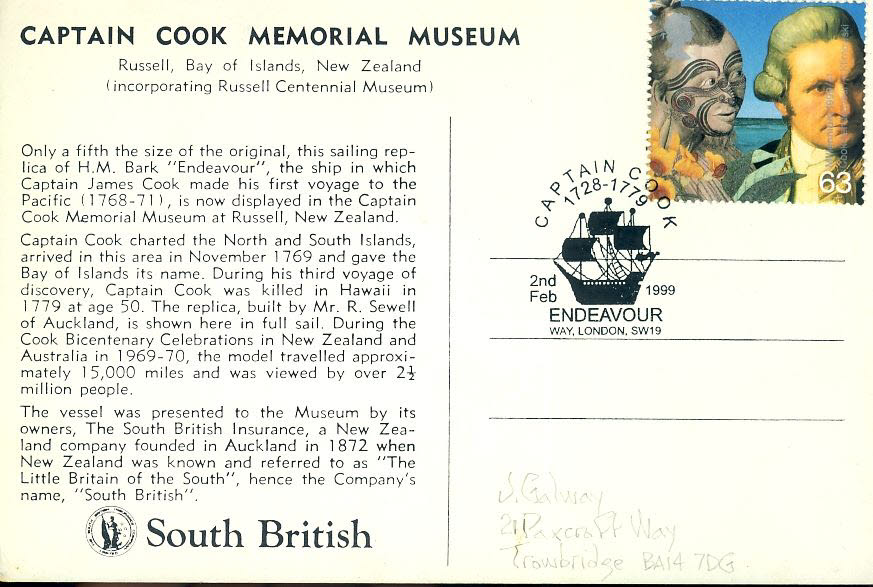 CAPTAIN COOK MEMORIAL MUSEUM
Russell, Bay of Islands, New Zealand
(incorporating Russell Centennial Museum)
Only a fifth the size of the original, this sailing rep-
lica of H.M. Bark "Endeavour", the ship in which
Captain James Cook made his first voyage to the
Pacific (1768-71), is now displayed in the Captain
Cook Memorial Museum at Russell, New Zealand.
Captain Cook charted the North and South Islands,
arrived in this area in November 1769 and gave the
Bay of Islands its name. During his third voyage of
discovery, Captain Cook was killed in Hawaii in
1779 at age 50. The replica, built by Mr. R. Sewell
of Auckland, is shown here in full sail. During the
Cook Bicentenary Celebrations in New Zealand and
Australia in 1969-70, the model travelled approxi-
mately 15,000 miles and was viewed by over 2½
million people.
The vessel was presented to the Museum by its
owners, The South British Insurance, a New Zea-
land company founded in Auckland in 1872 when
New Zealand was known and referred to as "The
Little Britain of the South", hence the Company's
name, "South British".
South British
63
CAPTAIN COOK
1728-1779
2nd
Feb
1999
ENDEAVOUR
WAY, LONDON, SW19
J. Galway
21 Paxcroft Way
Trowbridge BA14 7DG